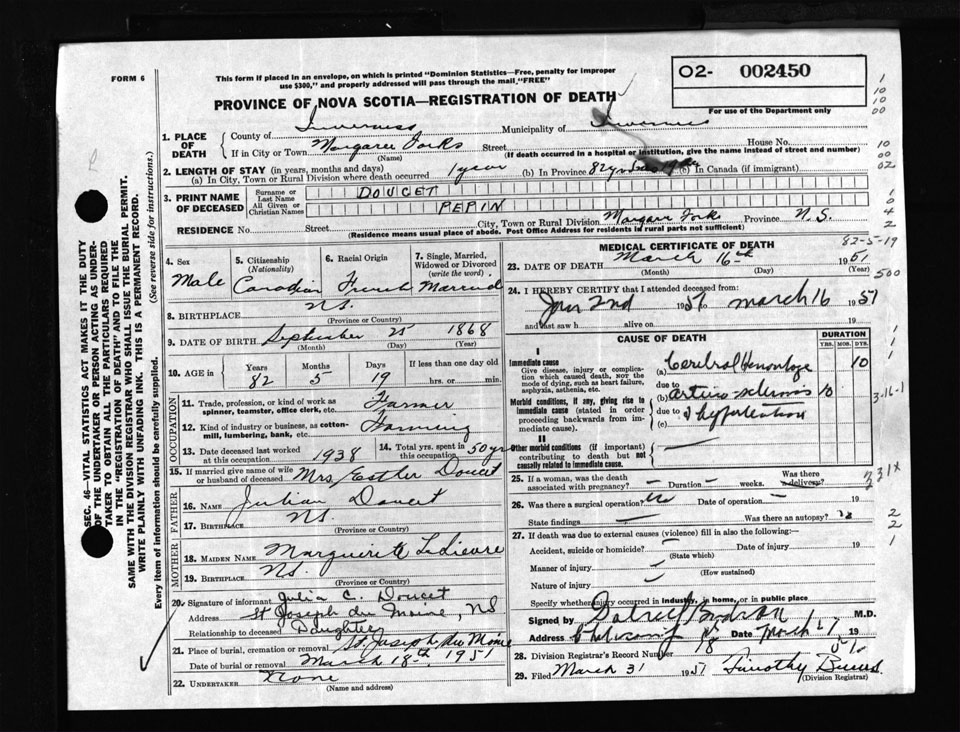 FORM 6
This form if placed in an envelope, on which is printed "Dominion Statistics—Free, penalty for improper
use $300," and properly addressed will pass through the mail "FREE"
02- 002450
For use of the Department only
PROVINCE OF NOVA SCOTIA—REGISTRATION OF DEATH
1. PLACE OF DEATH
County of Inverness Municipality of Inverness
If in City or Town Margaree Forks Street House No.
(Name) (If death occurred in a hospital or institution, give the name instead of street and number)
2. LENGTH OF STAY (in years, months and days)
(a) In City, Town or Rural Division where death occurred 1 year (b) In Province 82 yrs (c) In Canada (if immigrant)
3. PRINT NAME OF DECEASED
Surname or Last Name DOUCET
All Given or Christian Names PEPIN
RESIDENCE No. Street City, Town or Rural Division Margaree Forks Province N.S.
(Residence means usual place of abode. Post Office Address for residents in rural parts not sufficient)
4. Sex Male
5. Citizenship (Nationality) Canadian
6. Racial Origin French
7. Single, Married, Widowed or Divorced (write the word) Married
8. BIRTHPLACE N.S.
(Province or Country)
9. DATE OF BIRTH September 25 1868
(Month) (Day) (Year)
10. AGE in Years 82 Months 5 Days 19 If less than one day old hrs. or min.
OCCUPATION
11. Trade, profession, or kind of work as spinner, teamster, office clerk, etc. Farmer
12. Kind of industry or business, as cotton-mill, lumbering, bank, etc. Farming
13. Date deceased last worked at this occupation 1938
14. Total yrs. spent in this occupation 50 yrs
15. If married give name of wife or husband of deceased Mrs Esther Doucet
FATHER
16. Name Julian Doucet
17. Birthplace N.S.
(Province or Country)
MOTHER
18. MAIDEN NAME Marguerite LeLievre
19. BIRTHPLACE N.S.
(Province or Country)
20. Signature of informant Julia C. Doucet
Address St Joseph du Moine, NS
Relationship to deceased Daughter
21. Place of burial, cremation or removal St. Joseph du Moine
Date of burial or removal March 18th, 1951
22. UNDERTAKER None
(Name and address)
MEDICAL CERTIFICATE OF DEATH
82-5-19
23. DATE OF DEATH March 16th 1951
(Month) (Day) (Year)
24. I HEREBY CERTIFY that I attended deceased from:
Jan 2nd 1951 March 16 1951
and last saw h alive on 19
CAUSE OF DEATH
DURATION
YRS. MOS. DYS.
I
Immediate cause
Give disease, injury or complication which caused death, not the mode of dying, such as heart failure, asphyxia, asthenia, etc.
(a) Cerebral Hemorrhage 10
due to
Morbid conditions, if any, giving rise to immediate cause (stated in order proceeding backwards from immediate cause).
(b) arterio sclerosis 10
due to
(c) & hypertension
II
Other morbid conditions (if important) contributing to death but not causally related to immediate cause.
25. If a woman, was the death associated with pregnancy? Duration weeks. Was there a delivery?
26. Was there a surgical operation? No Date of operation
State findings Was there an autopsy?
27. If death was due to external causes (violence) fill in also the following:—
Accident, suicide or homicide? Date of injury 19
(State which)
Manner of injury
(How sustained)
Nature of injury
Specify whether injury occurred in industry, in home, or in public place
Signed M.D.
Address Date March 19
28. Division Registrar's Record Number 18
29. Filed March 31 1951 Timothy
(Division Registrar)
SEC. 46—VITAL STATISTICS ACT MAKES IT THE DUTY
OF THE UNDERTAKER OR PERSON ACTING AS UNDERTAKER
TO OBTAIN ALL THE PARTICULARS REQUIRED
IN THE "REGISTRATION OF DEATH" AND TO FILE THE
SAME WITH THE DIVISION REGISTRAR WHO SHALL ISSUE THE BURIAL PERMIT.
WRITE PLAINLY WITH UNFADING INK. THIS IS A PERMANENT RECORD.
Every item of information should be carefully supplied. (See reverse side for instructions.)